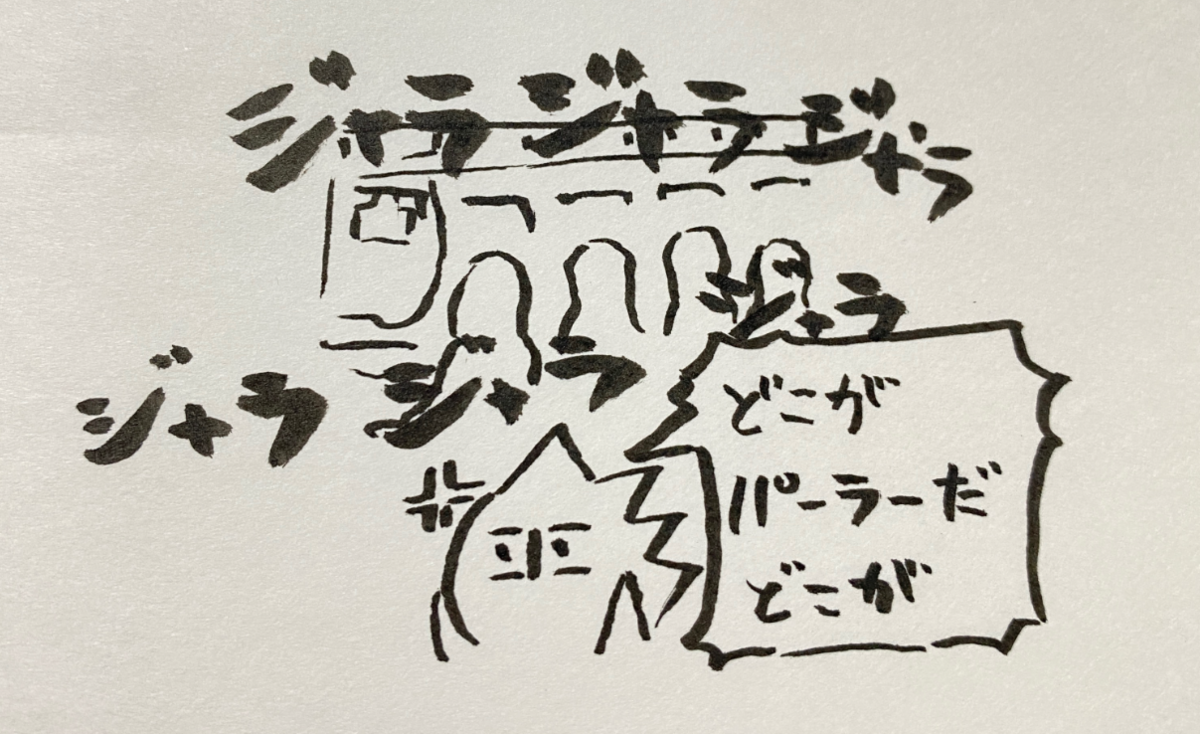 ジャラジャラジャラ
ジャラ
ジャラ ジャラ
どこが
パーラーだ
どこが